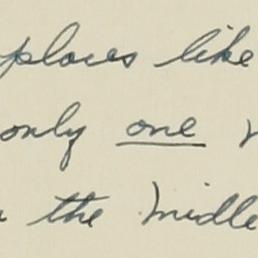 places like
only one
the midle